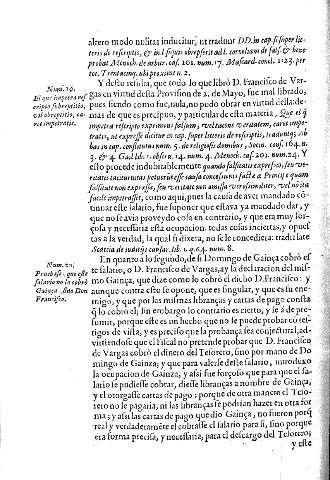 altero modo nullitas inducitur, ut tradunt DD. in cap. si super literis de rescriptis, & in l. si quis obrepserit ad l. corneliam de fals. & bene
probat Menoch. de arbitr. cas. 201. num. 17. Mascard. concl. 1123. per
tot. Trentacinq. ubi proxime n. 2.
Num. 20.
El que impetra res
cripto subrepticio,
vel obrepticio, ca-
ret impetratis.
Y desto resulta, que todo lo que libró D. Francisco de Var-
gas en virtud desta Provision de 2. de Mayo, fue mal librado,
pues siendo como fue, nula, no pudo obrar en virtud della: de-
mas de que es precipuo, y particular de esta materia, Que el q̃
impetra rescripto exprimens falsum, vel tacens veritatem, caret impe-
tratis, ut expresse dicitur in cap. super literis de rescriptis, tradunt
bas in cap. constitutus num. 5. de religiosis domibus, Socin. cons. 164. n.
3. & 4. Gail lib. 1. obser. n. 14. num. 4. Menoch. cas. 201. num. 24. Y esto
procede indubitablemente quando falsitatis expressio, seu ve-
ritatis taciturnitas potuit esse causa concessionis factæ a Principe; quam
falsitate non expressa, seu veritate non amissa vere similiter, vel no ita
facile impetrasset, como aqui, pues la causa de aver mandado co-
tinuar este salario, fue suponer que estava ya mandado dar, y
que no se avia proveydo cosa en contrario, y que era muy for-
çosa y necessaria esta ocupacion: todas cosas inciertas, y opues
tas a la verdad, la qual si dixera, no se le concediera: tradit late
Scaccia de iudicijs causar. lib. 1. q. 64. num. 8.
Num. 21.
Pruebase, que este
salario no lo cobró
Gainça, sino Don
Francisco.
En quanto a lo segundo, de si Domingo de Gainça cobró es
te salario, o D. Francisco de Vargas, ay la declaracion del mismo
Gainça, que dize como lo cobró el dicho D. Francisco: y
aunque contra esto se opone, que es singular, y que es su ene-
migo, y que por las mismas libranças y cartas de pago consta
q̃ lo cobró el; sin embargo lo contrario es cierto, y se á de pre-
sumir, porque este es un hecho que no se le puede probar co tes-
tigos de vista, y es preciso que la probança sea conjectural, ad-
virtiendose que el Fiscal no pretende probar que D. Francisco
de Vargas cobró el dinero del Tesorero, sino por mano de Do
mingo de Gainça; y que para valerse deste salario, introduxo
la ocupacion de Gainça, y assi fue forçoso que para que el sa-
lario se pudiesse cobrar, diesse libranças a nombre de Gainça,
y el otorgasse cartas de pago: porque de otra manera el Teso-
rero no le pagaria, ni las libranças se podrian hazer en otra for
ma; y assi las cartas de pago que dio Gainça, no fueron porq̃
real y verdaderamẽte el cobrasse el salario para si, sino porque
era forma precisa, y necessaria, para el descargo del Tesorero;
y este